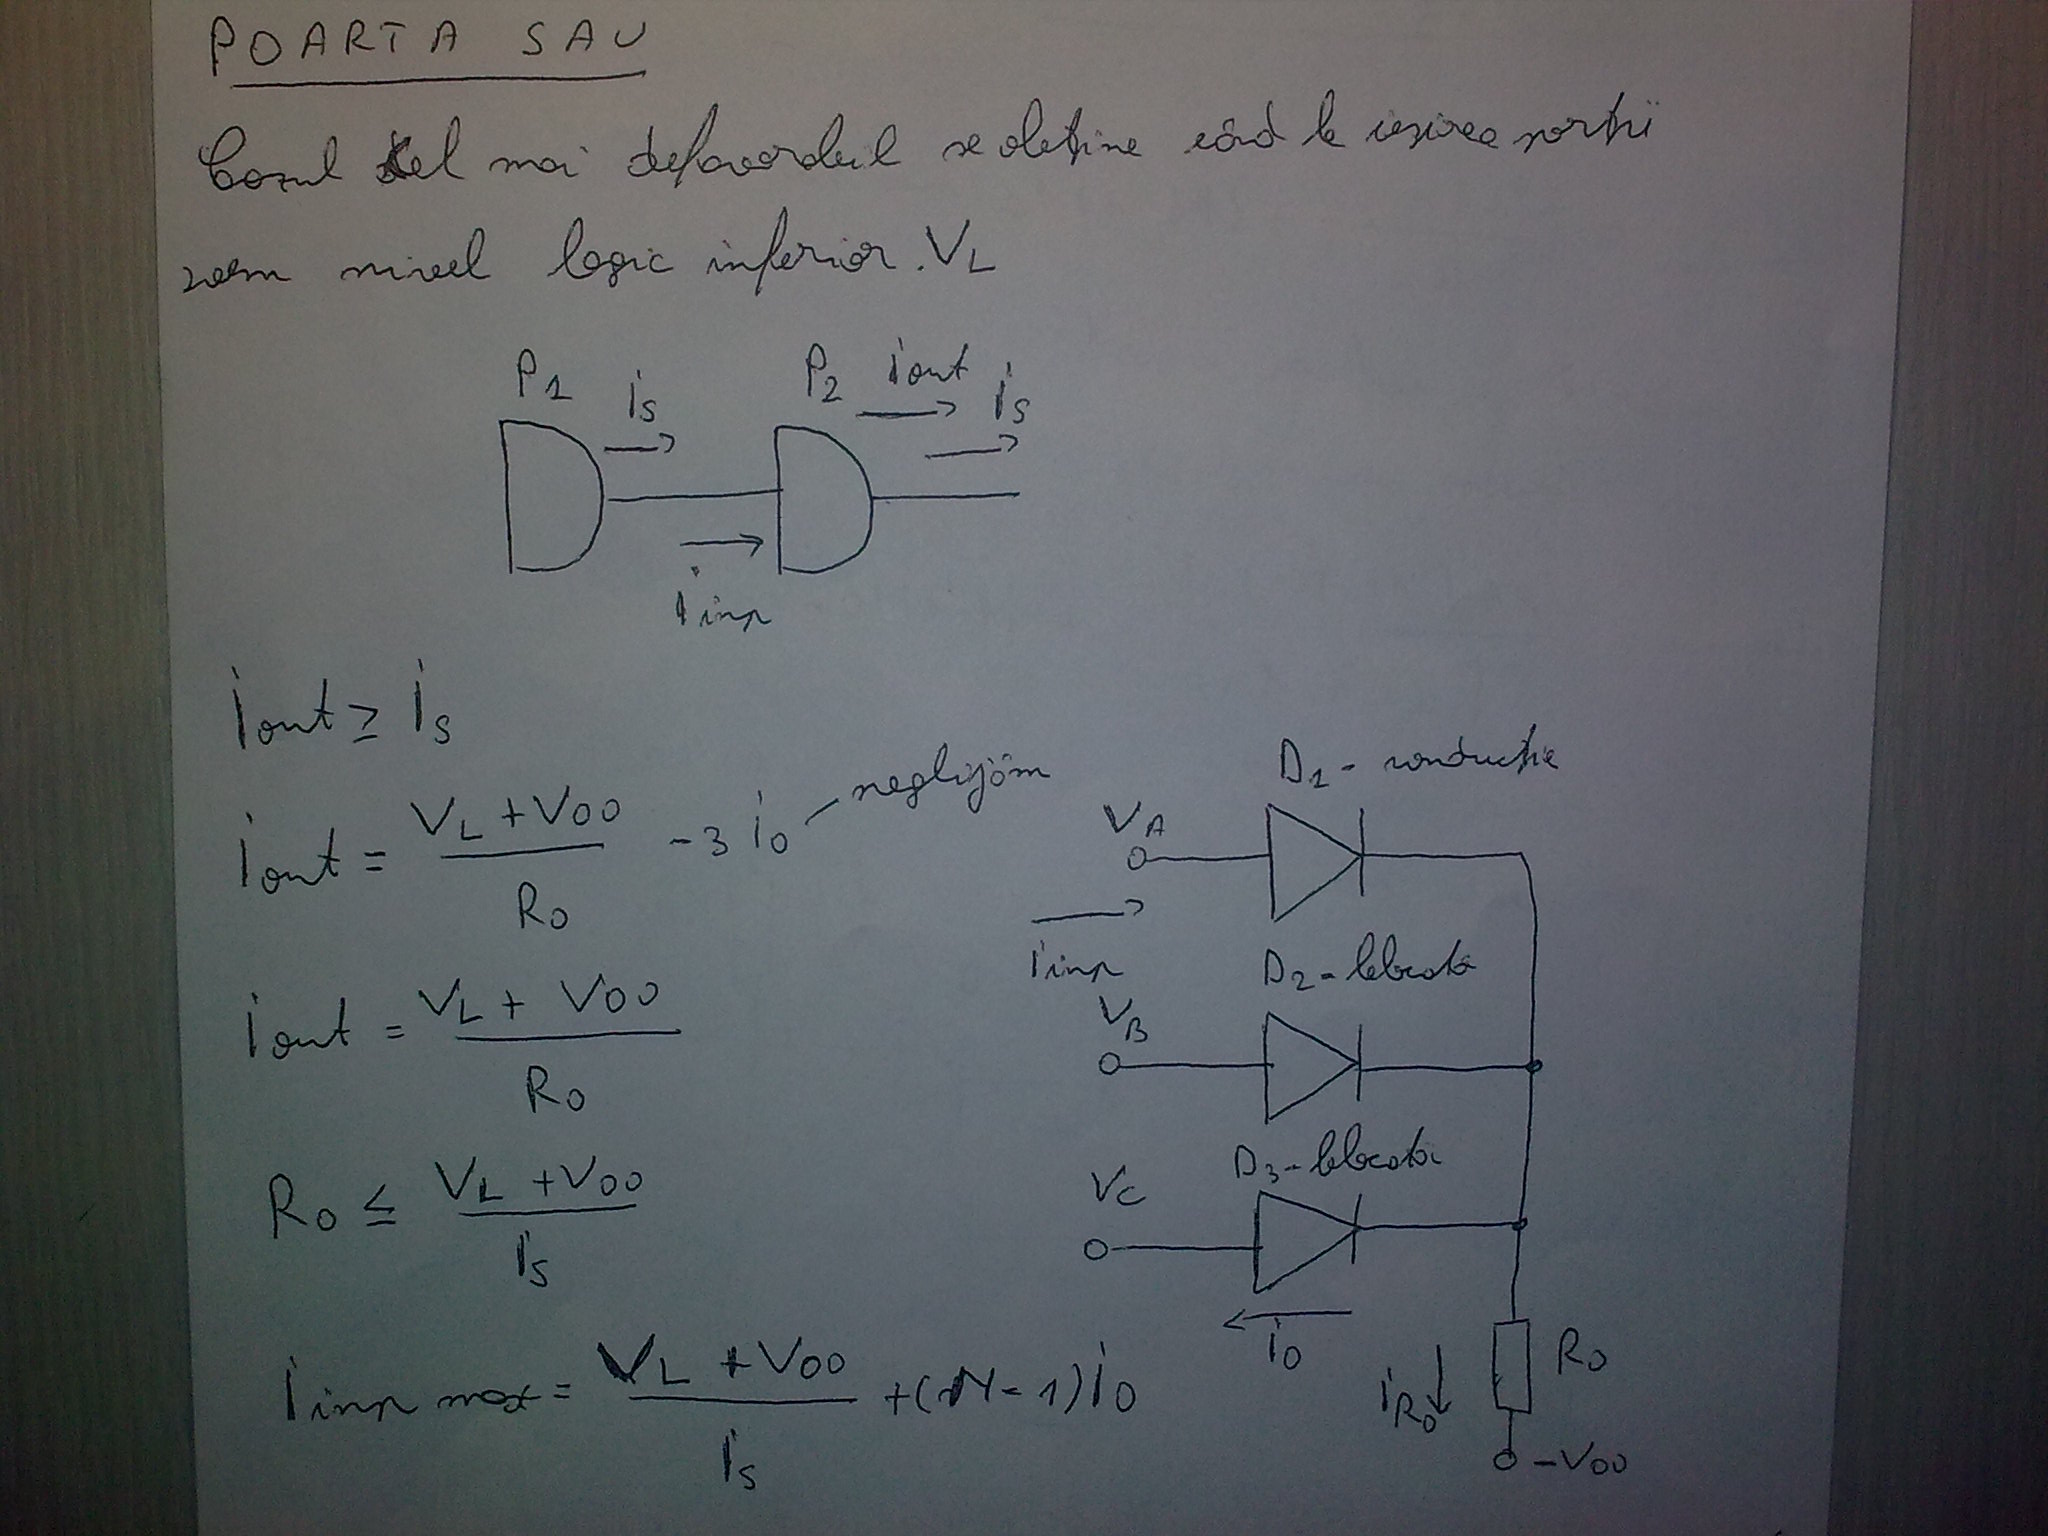 POARTA SAU
Cazul cel mai defavorabil se obține când la ieșirea porții
avem nivel logic inferior. VL
P1 is P2 iout is
iinp
iout ≥ is
iout = (VL + VOO) / RO - 3 iO negligăm
iout = (VL + VOO) / RO
RO ≤ (VL + VOO) / is
iinp max = (VL + VOO) / is + (N - 1) iO
D1 - conducție
VA
iinp
D2 - blocată
VB
D3 - blocată
VC
iO
iRO
RO
-VOO